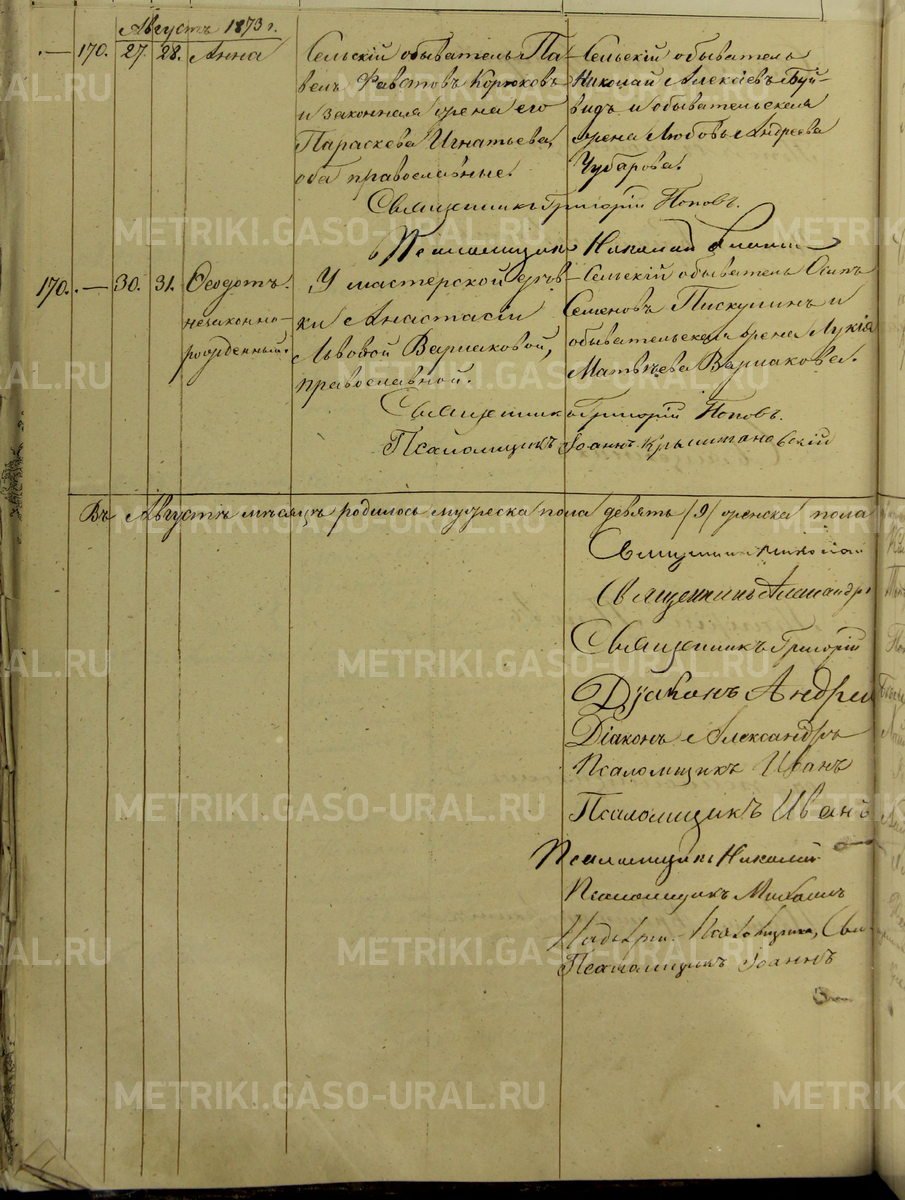 Августъ 1873 г.
170. 27. 28. Анна
Сельскій обыватель Па-
велъ Фавстовъ Корюковъ
и законная жена его
Параскева Игнатьева,
оба православные.
Сельскій обыватель
Николай Алексѣевъ Буй-
видъ и обывательская
жена Любовь Андреева
Чубарова.
Священникъ Григорій Поповъ.
Псаломщикъ Николай
170. 30. 31. Ѳеодотъ.
незаконно-
рожденный.
У мастерской дѣв-
ки Анастасіи
Львовой Варлаковой,
православной.
Сельскій обыватель Осипъ
Семеновъ Пискунинъ и
обывательская жена Лукія
Матвѣева Варлакова.
Священникъ Григорій Поповъ.
Псаломщикъ Іоаннъ Крыжтановскій
Въ Августѣ мѣсяцѣ родилось мужеска пола девять /9/ женска пола
Священникъ Николай
Священникъ Александръ
Священникъ Григорій
Діаконъ Андрей
Діаконъ Александръ
Псаломщикъ Иванъ
Псаломщикъ Иванъ
Псаломщикъ Николай
Псаломщикъ Михаилъ
Псаломщикъ Іоаннъ
METRIKI.GASO-URAL.RU